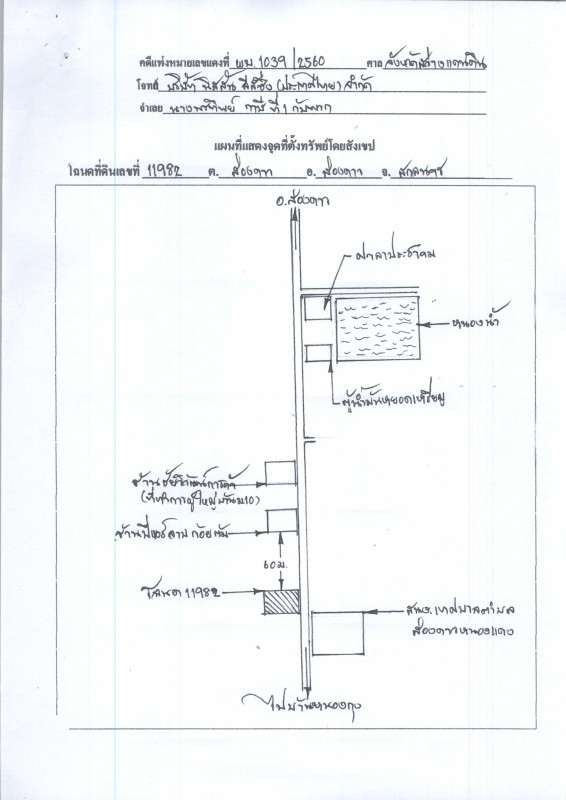 คดีแพ่งหมายเลขแดงที่ ผบ. 1039 /2560 ศาล จังหวัดสว่างแดนดิน
โจทก์ บริษัท นิสสัน ลีสซิ่ง (ประเทศไทย) จำกัด
จำเลย ที่ 1 กับพวก
แผนที่แสดงจุดที่ตั้งทรัพย์โดยสังเขป
โฉนดที่ดินเลขที่ 11982 ต. ส่องดาว อ. ส่องดาว จ. สกลนคร
อ.ส่องดาว
ศาลาประชาคม
หนองน้ำ
ตู้น้ำมันหยอดเหรียญ
ร้าน การค้า
(ที่ทำการผู้ใหญ่บ้าน ม.10)
ร้าน ลาบ ก้อย
60 ม.
โฉนด 11982
สนง. เทศบาลตำบล
ส่องดาวหนองแดง
ไปบ้านหนองกุง